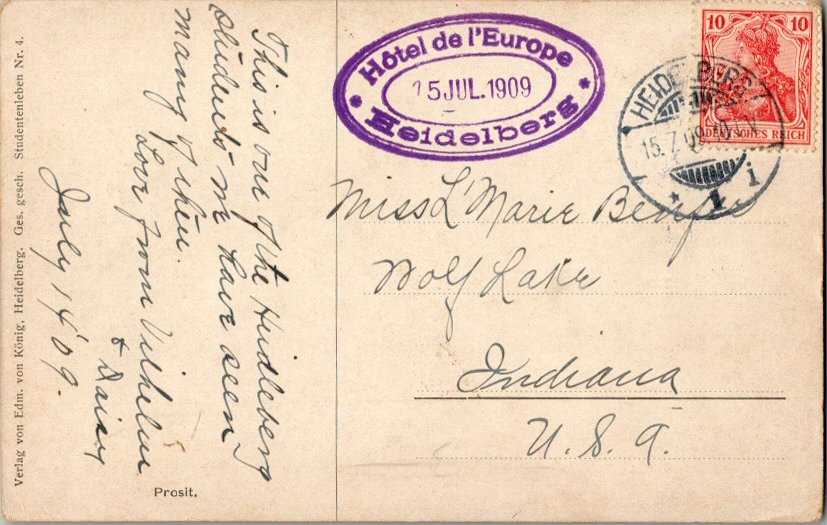 Verlag von Edm. von König, Heidelberg. Ges. gesch. Studentenleben Nr. 4.
This is one of the Heidleberg
students we have seen
many of them.
Love from Vilhelm
+ Daisy
July 14 '09.
Prosit.
Hôtel de l'Europe
15 JUL. 1909
* Heidelberg *
HEIDELBERG
15.7.09
* 1 i
10 10
DEUTSCHES REICH
Miss L'Marie
Wolf Lake
Indiana
U.S.A.